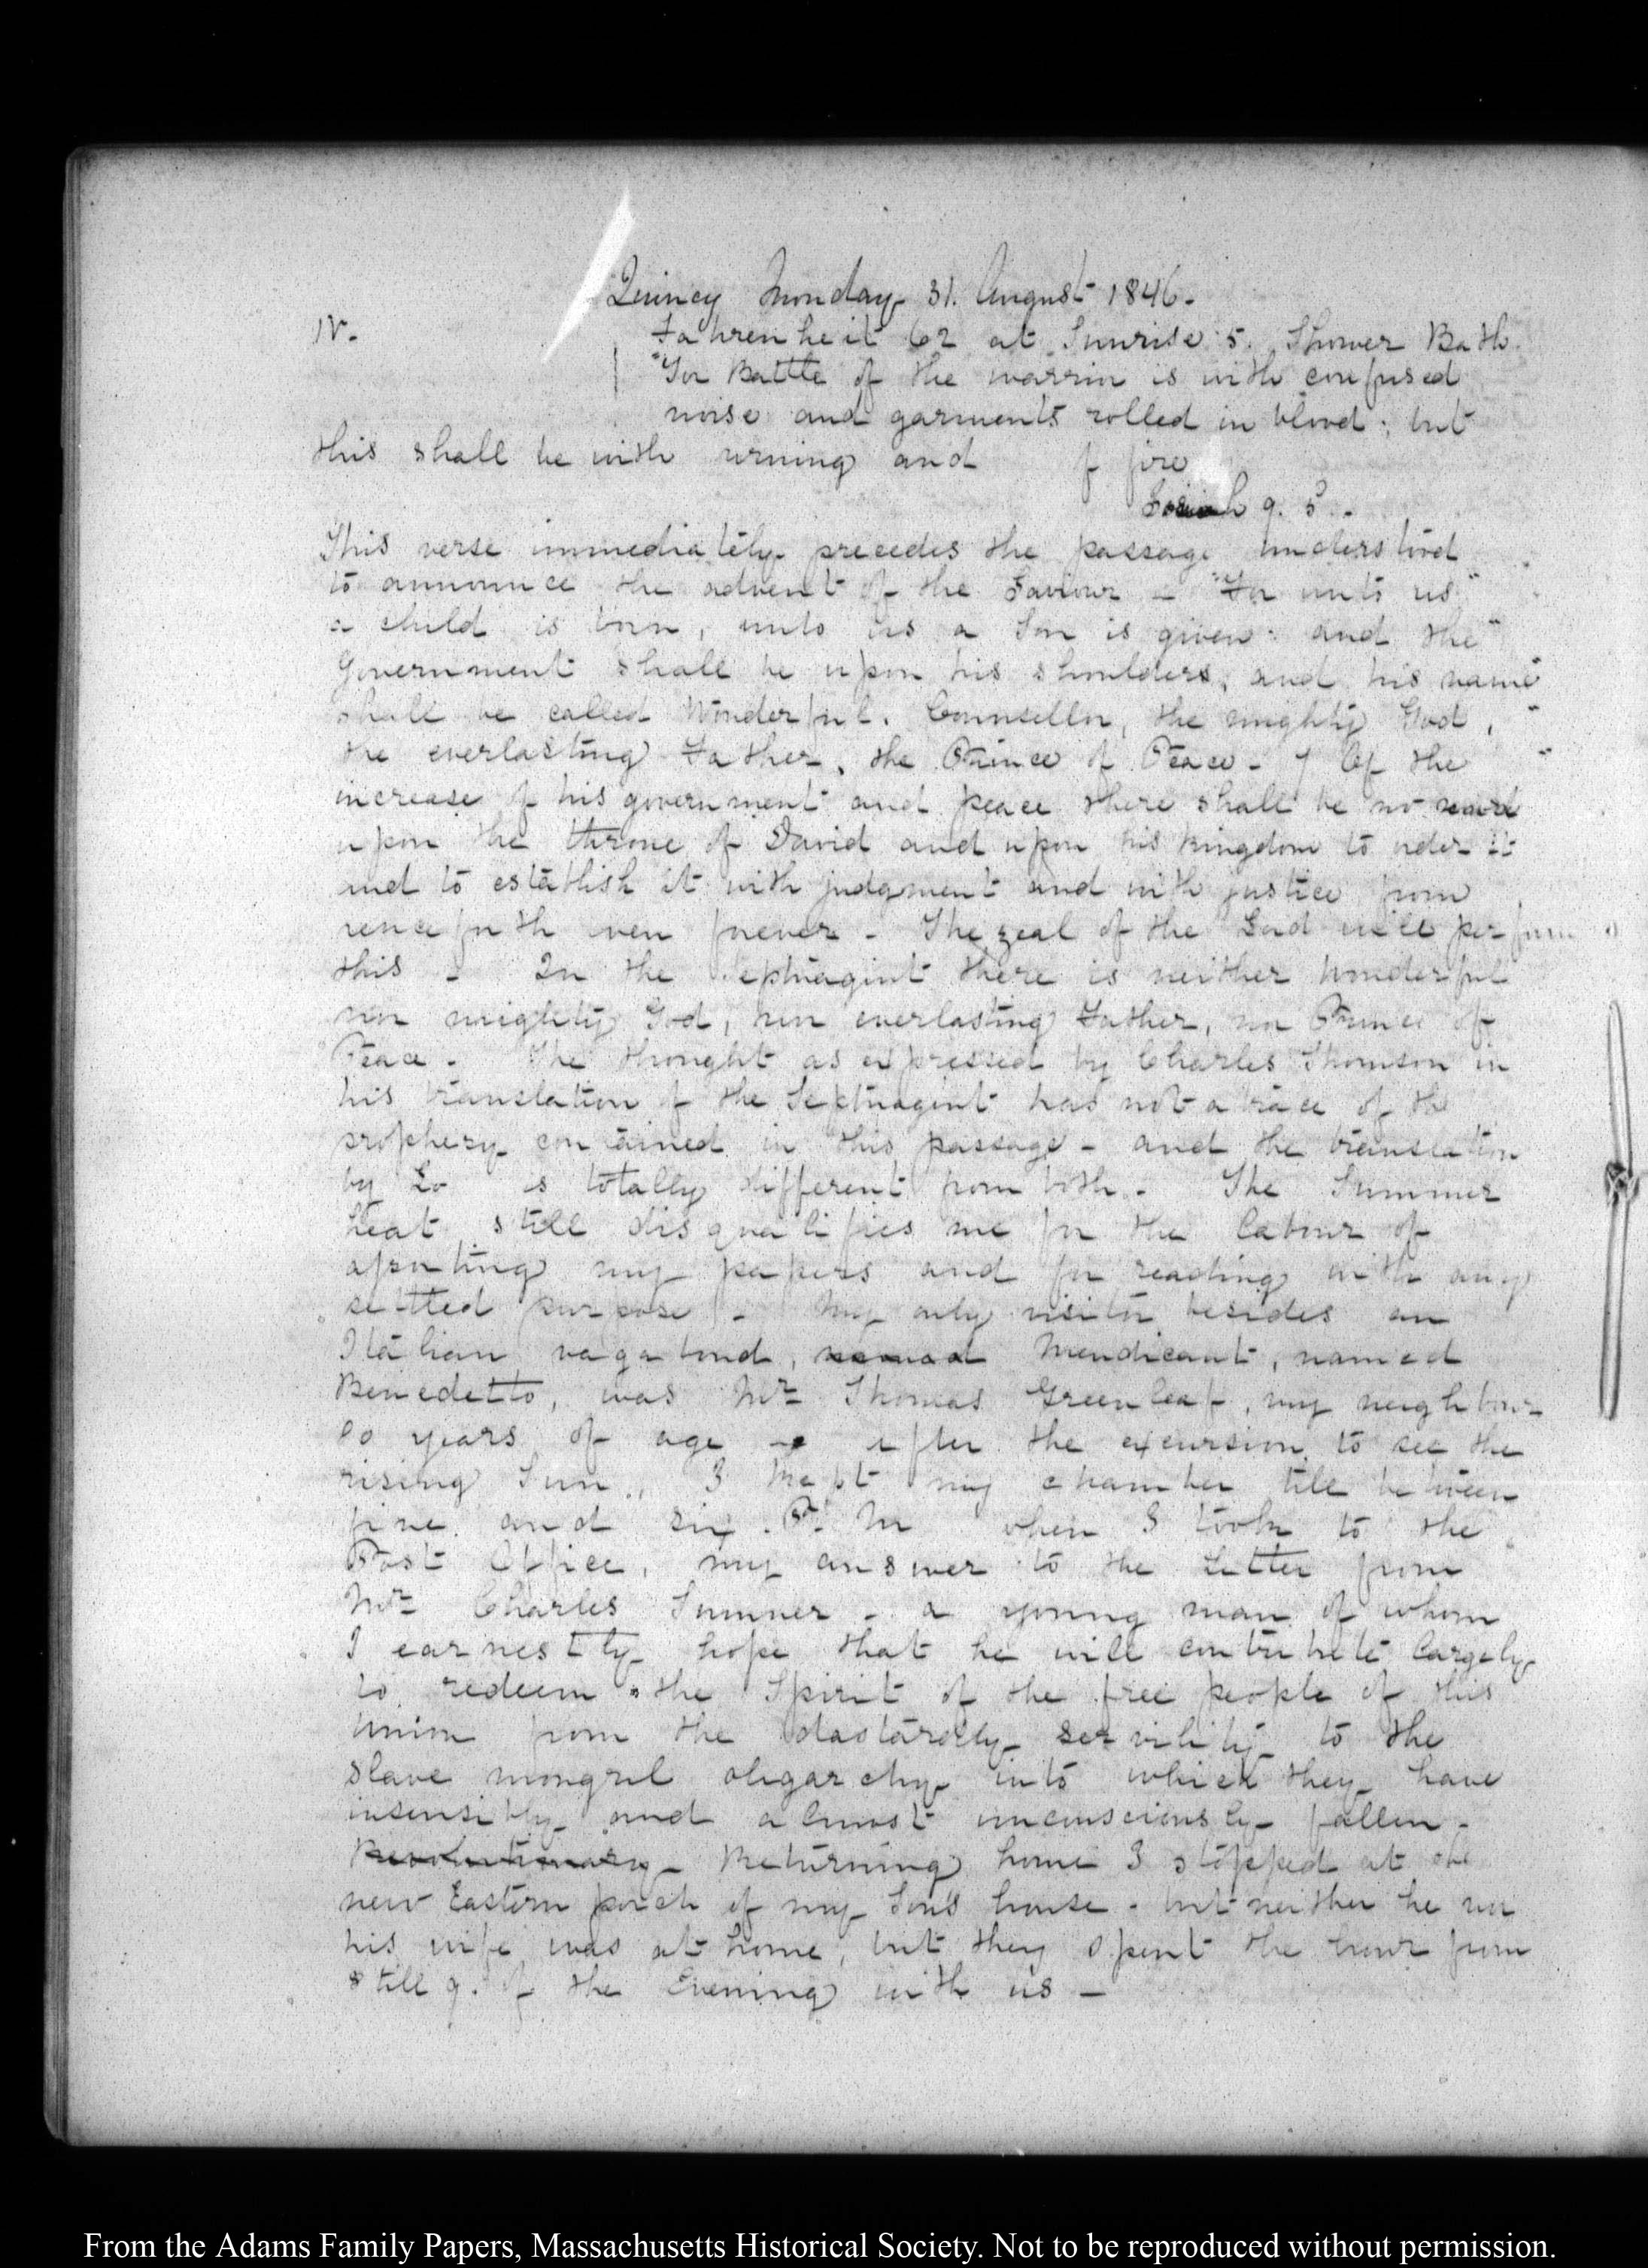 Quincy Monday 31. August 1846.
IV.
Fahrenheit 62 at Sunrise 5. Shower Bath.
"For Battle of the warrior is with confused
noise and garments rolled in blood; but
this shall be with urning and f fire
Isaiah 9. 5.
This verse immediately precedes the passage understood
to announce the advent of the Saviour — "For unto us"
a child is born, unto us a Son is given: and the"
Government shall be upon his shoulders, and his name"
shall be called Wonderful. Counsellor, the mighty God, "
the everlasting Father, the Prince of Peace — 7 Of the "
increase of his government and peace there shall be no
upon the throne of David and upon his kingdom to order it
and to establish it with judgment and with justice from
henceforth even forever — The zeal of the Lord will perform
this — In the Septuagint there is neither wonderful
nor mighty God, nor everlasting Father, nor Prince of
Peace — The thought as expressed by Charles Thomson in
his translation of the Septuagint has not a trace of the
prophecy contained in this passage — and the translation
by Lo is totally different from both — The Summer
heat still disqualifies me for the labour of
assorting my papers and for reading with any
settled purpose — My only visitor besides an
Italian vagabond, Mendicant, named
Benedetto, was Mr. Thomas Greenleaf, my neighbour
80 years of age — after the excursion to see the
rising Sun, I kept my chamber till between
five and six P. M when I took to the
Post Office, my answer to the Letter from
Mr. Charles Sumner — a young man of whom
I earnestly hope that he will contribute largely
to redeem the Spirit of the free people of this
Union from the dastardly servility to the
slave mongrel oligarchy into which they have
insensibly and almost unconsciously fallen —
Revolutionary — Returning home I stopped at the
new Eastern porch of my Son's house — but neither he nor
his wife was at home, but they spent the hour from
8 till 9. of the Evening with us —
From the Adams Family Papers, Massachusetts Historical Society. Not to be reproduced without permission.